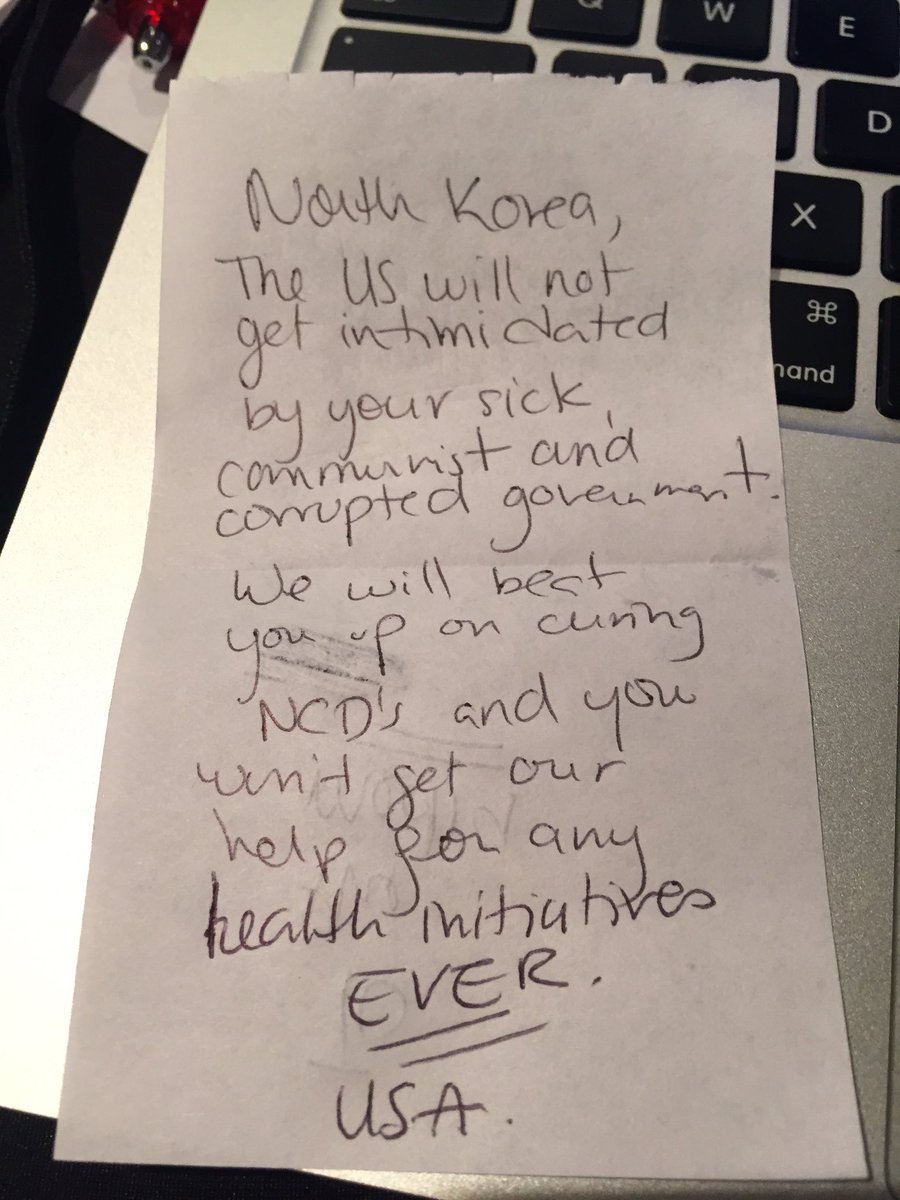 Q
W
E
D
X
⌘
mand
North Korea,
The US will not
get intimidated
by your sick,
communist and
corrupted government.
We will beat
you up on curing
NCD's and you
won't get our
help for any
health initiatives
EVER.
USA.